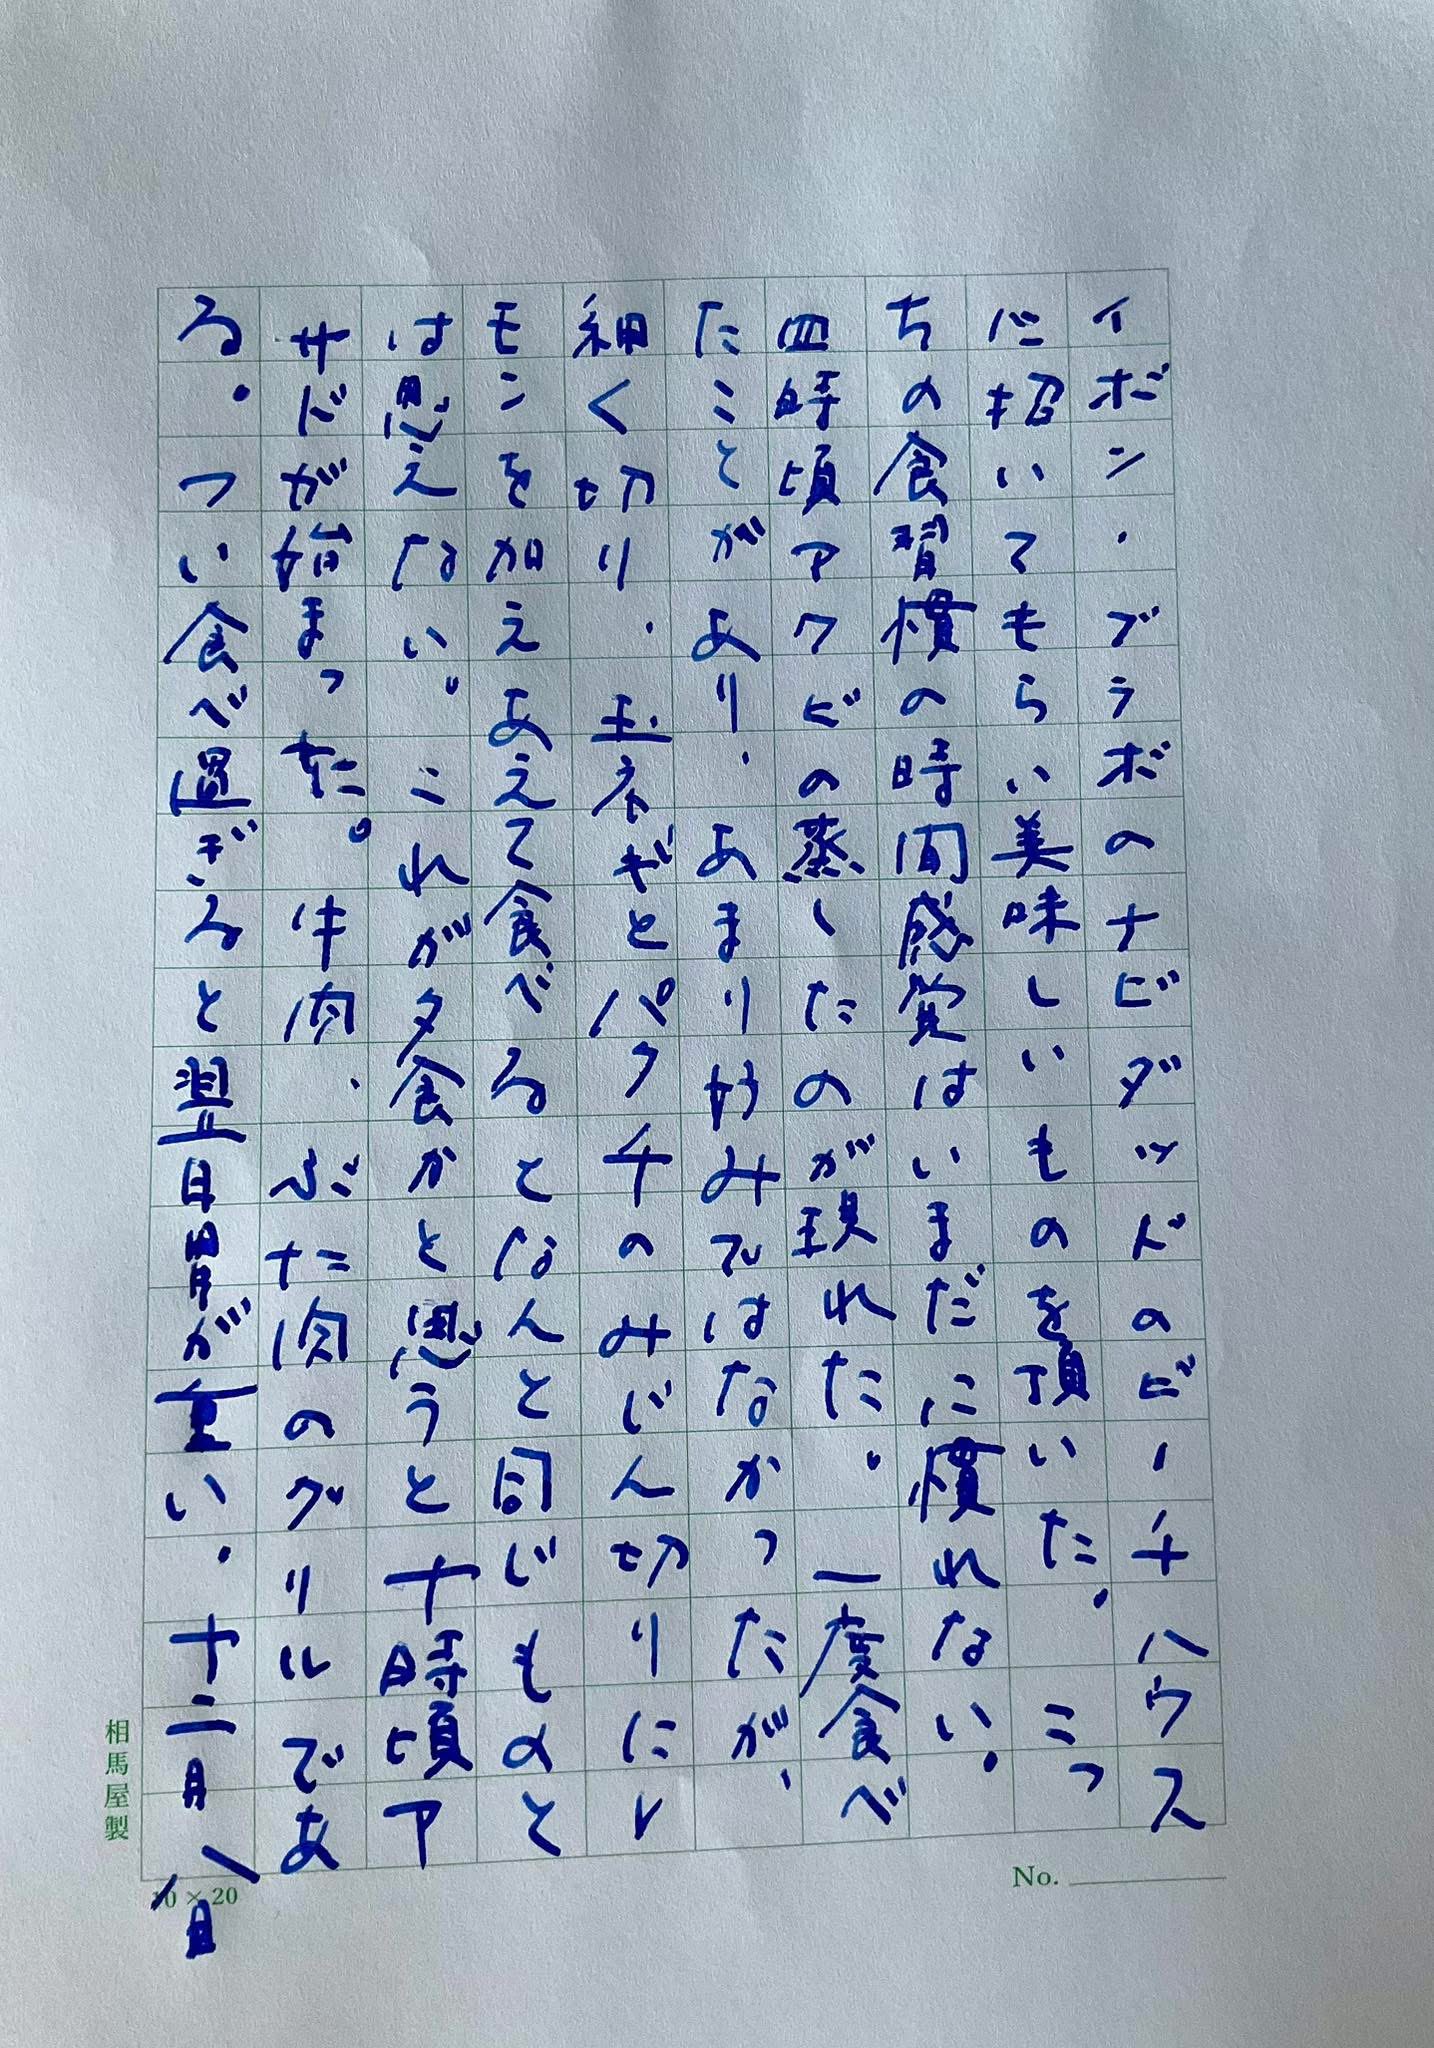 イボン・ブラボのナビダッドのビーチハウス
に招いてもらい美味しいものを頂いた。こっ
ちの食習慣の時間感覚はいまだに慣れない。
四時頃アワビの蒸したのが現れた。一度食べ
たことがあり、あまり好みではなかったが、
細く切り、玉ネギとパクチのみじん切りにレ
モンを加えあえて食べるとなんと同じものと
は思えない。これが夕食かと思うと十時頃ア
サドが始まった。牛肉、ぶた肉のグリルであ
る。つい食べ過ぎると翌日胃が重い。十二月八日
相馬屋製
10×20
No.